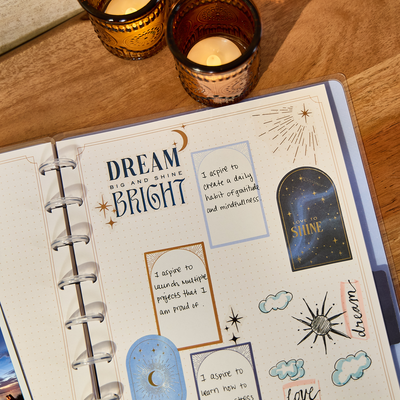 DREAM
BIG AND SHINE
BRIGHT
I aspire to
create a daily
habit of gratitude
and mindfulness
SHINE
I aspire to
launch multiple
projects that I
am proud of
I aspire to
learn how to
dream
love